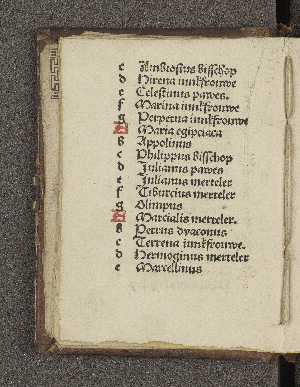 c Ambrosius bisschop
d Hirena iunkfrouwe
e Celestinus pawes.
f Marina iunkfrouwe
g Perpetua iunkfrouwe
A Maria egipciaca
b Appolinus
c Philippus bisschop
d Iulianus pawes
e Iulianus merteler
f Tiburcius merteler
g Olimpus
A Marcialis merteler.
b Petrus dyaconus
c Terrena iunkfrouwe.
d Hermoginus merteler
e Marcellinus